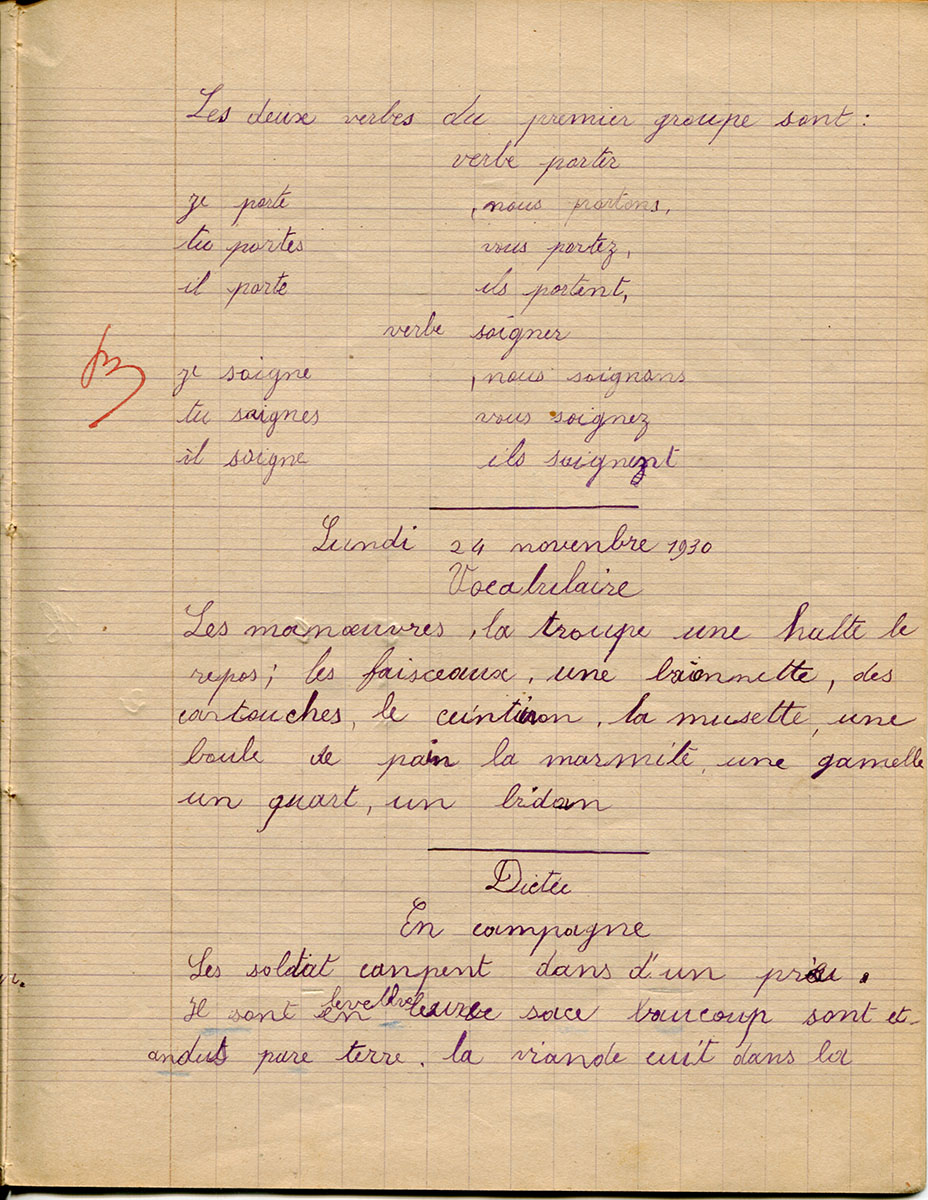 Les deux verbes du premier groupe sont :
verbe porter
je porte , nous portons,
tu portes vous portez,
il porte ils portent,
verbe soigner
B
je soigne , nous soignons
tu soignes vous soignez
il soigne ils soignent
Lundi 24 novenbre 1930
Vocabulaire
Les manœuvres, la troupe une halte le
repos; les faisceaux, une baionnette, des
cartouches, le ceinturon, la musette, une
boule de pain la marmite, une gamelle
un quart, un bidon
Dictée
En campagne
Les soldat canpent dans d'un .
Il sont en sace baucoup sont et-
anduts pare terre. la viande cuit dans la